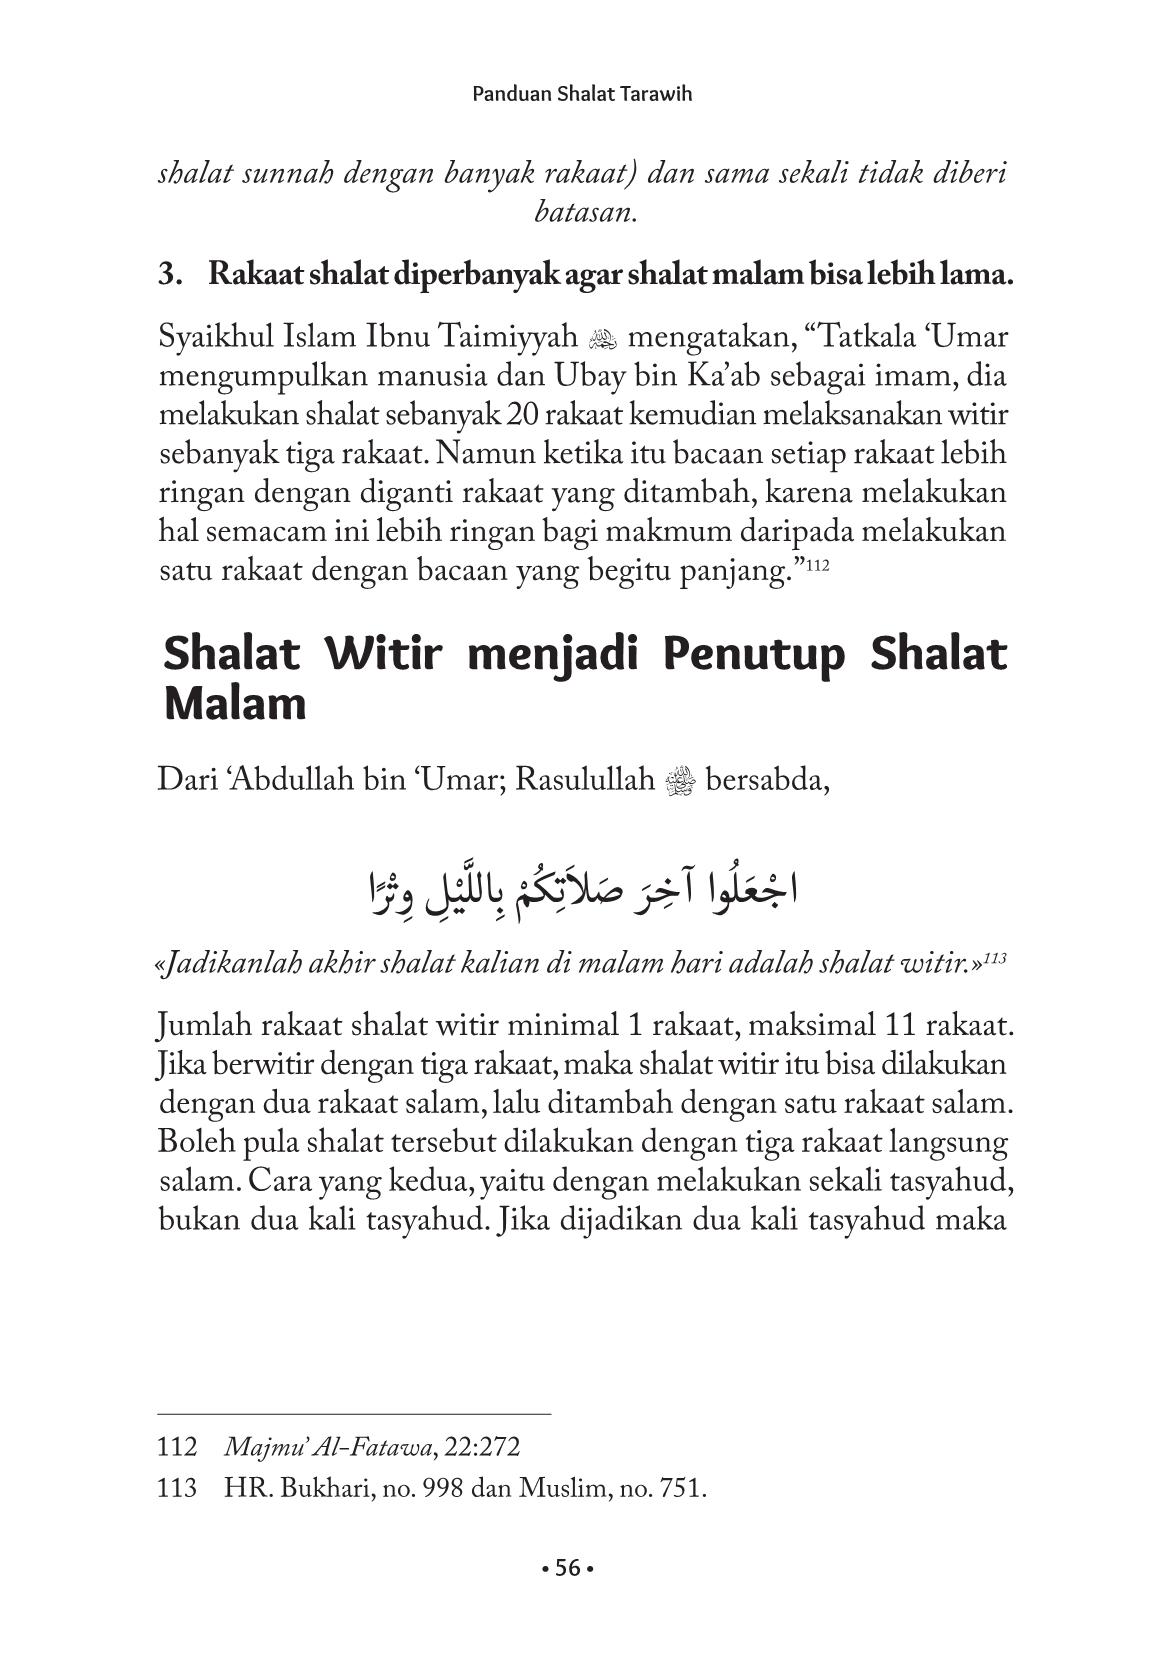 Panduan Shalat Tarawih
shalat sunnah dengan banyak rakaat) dan sama sekali tidak diberi
batasan.
3. Rakaat shalat diperbanyak agar shalat malam bisa lebih lama.
Syaikhul Islam Ibnu Taimiyyah رحمه الله mengatakan, “Tatkala ‘Umar
mengumpulkan manusia dan Ubay bin Ka’ab sebagai imam, dia
melakukan shalat sebanyak 20 rakaat kemudian melaksanakan witir
sebanyak tiga rakaat. Namun ketika itu bacaan setiap rakaat lebih
ringan dengan diganti rakaat yang ditambah, karena melakukan
hal semacam ini lebih ringan bagi makmum daripada melakukan
satu rakaat dengan bacaan yang begitu panjang.”112
Shalat Witir menjadi Penutup Shalat
Malam
Dari ‘Abdullah bin ‘Umar; Rasulullah ﷺ bersabda,
اجْعَلُوا آخِرَ صَلاَتِكُمْ بِاللَّيْلِ وِتْرًا
«Jadikanlah akhir shalat kalian di malam hari adalah shalat witir.»113
Jumlah rakaat shalat witir minimal 1 rakaat, maksimal 11 rakaat.
Jika berwitir dengan tiga rakaat, maka shalat witir itu bisa dilakukan
dengan dua rakaat salam, lalu ditambah dengan satu rakaat salam.
Boleh pula shalat tersebut dilakukan dengan tiga rakaat langsung
salam. Cara yang kedua, yaitu dengan melakukan sekali tasyahud,
bukan dua kali tasyahud. Jika dijadikan dua kali tasyahud maka
112 Majmu’ Al-Fatawa, 22:272
113 HR. Bukhari, no. 998 dan Muslim, no. 751.
• 56 •